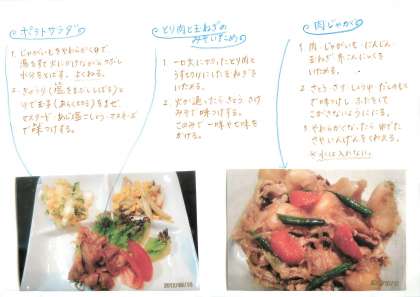 ポテトサラダ
1. じゃがいもをやわらかくゆで
湯をすて火にかけながらつぶし
水分をとばす。よくねる。
2. きゅうり(塩をまぶししぼる)と
ゆで玉子(あらくきざむ)をまぜ、
マスタード あじ塩こしょう・マヨネーズ
で味つけする。
とり肉と玉ねぎの
みそいため
1. 一口大に切ったとり肉と
うすくスライスした玉ねぎを
いためる。
2. 火が通ったら さとう さけ
みそで味つけする。
このみで一味や七味を
かける。
肉じゃが
1. 肉 じゃがいも にんじん
玉ねぎ 糸こんにゃくを
いためる。
2. さとう さけ しょうゆ だしのもと
で味つけし ふたをして
こがさないようににる。
3. やわらかくなったら ゆでた
さやいんげんを入れる。
※水は入れない。
2012/06/10